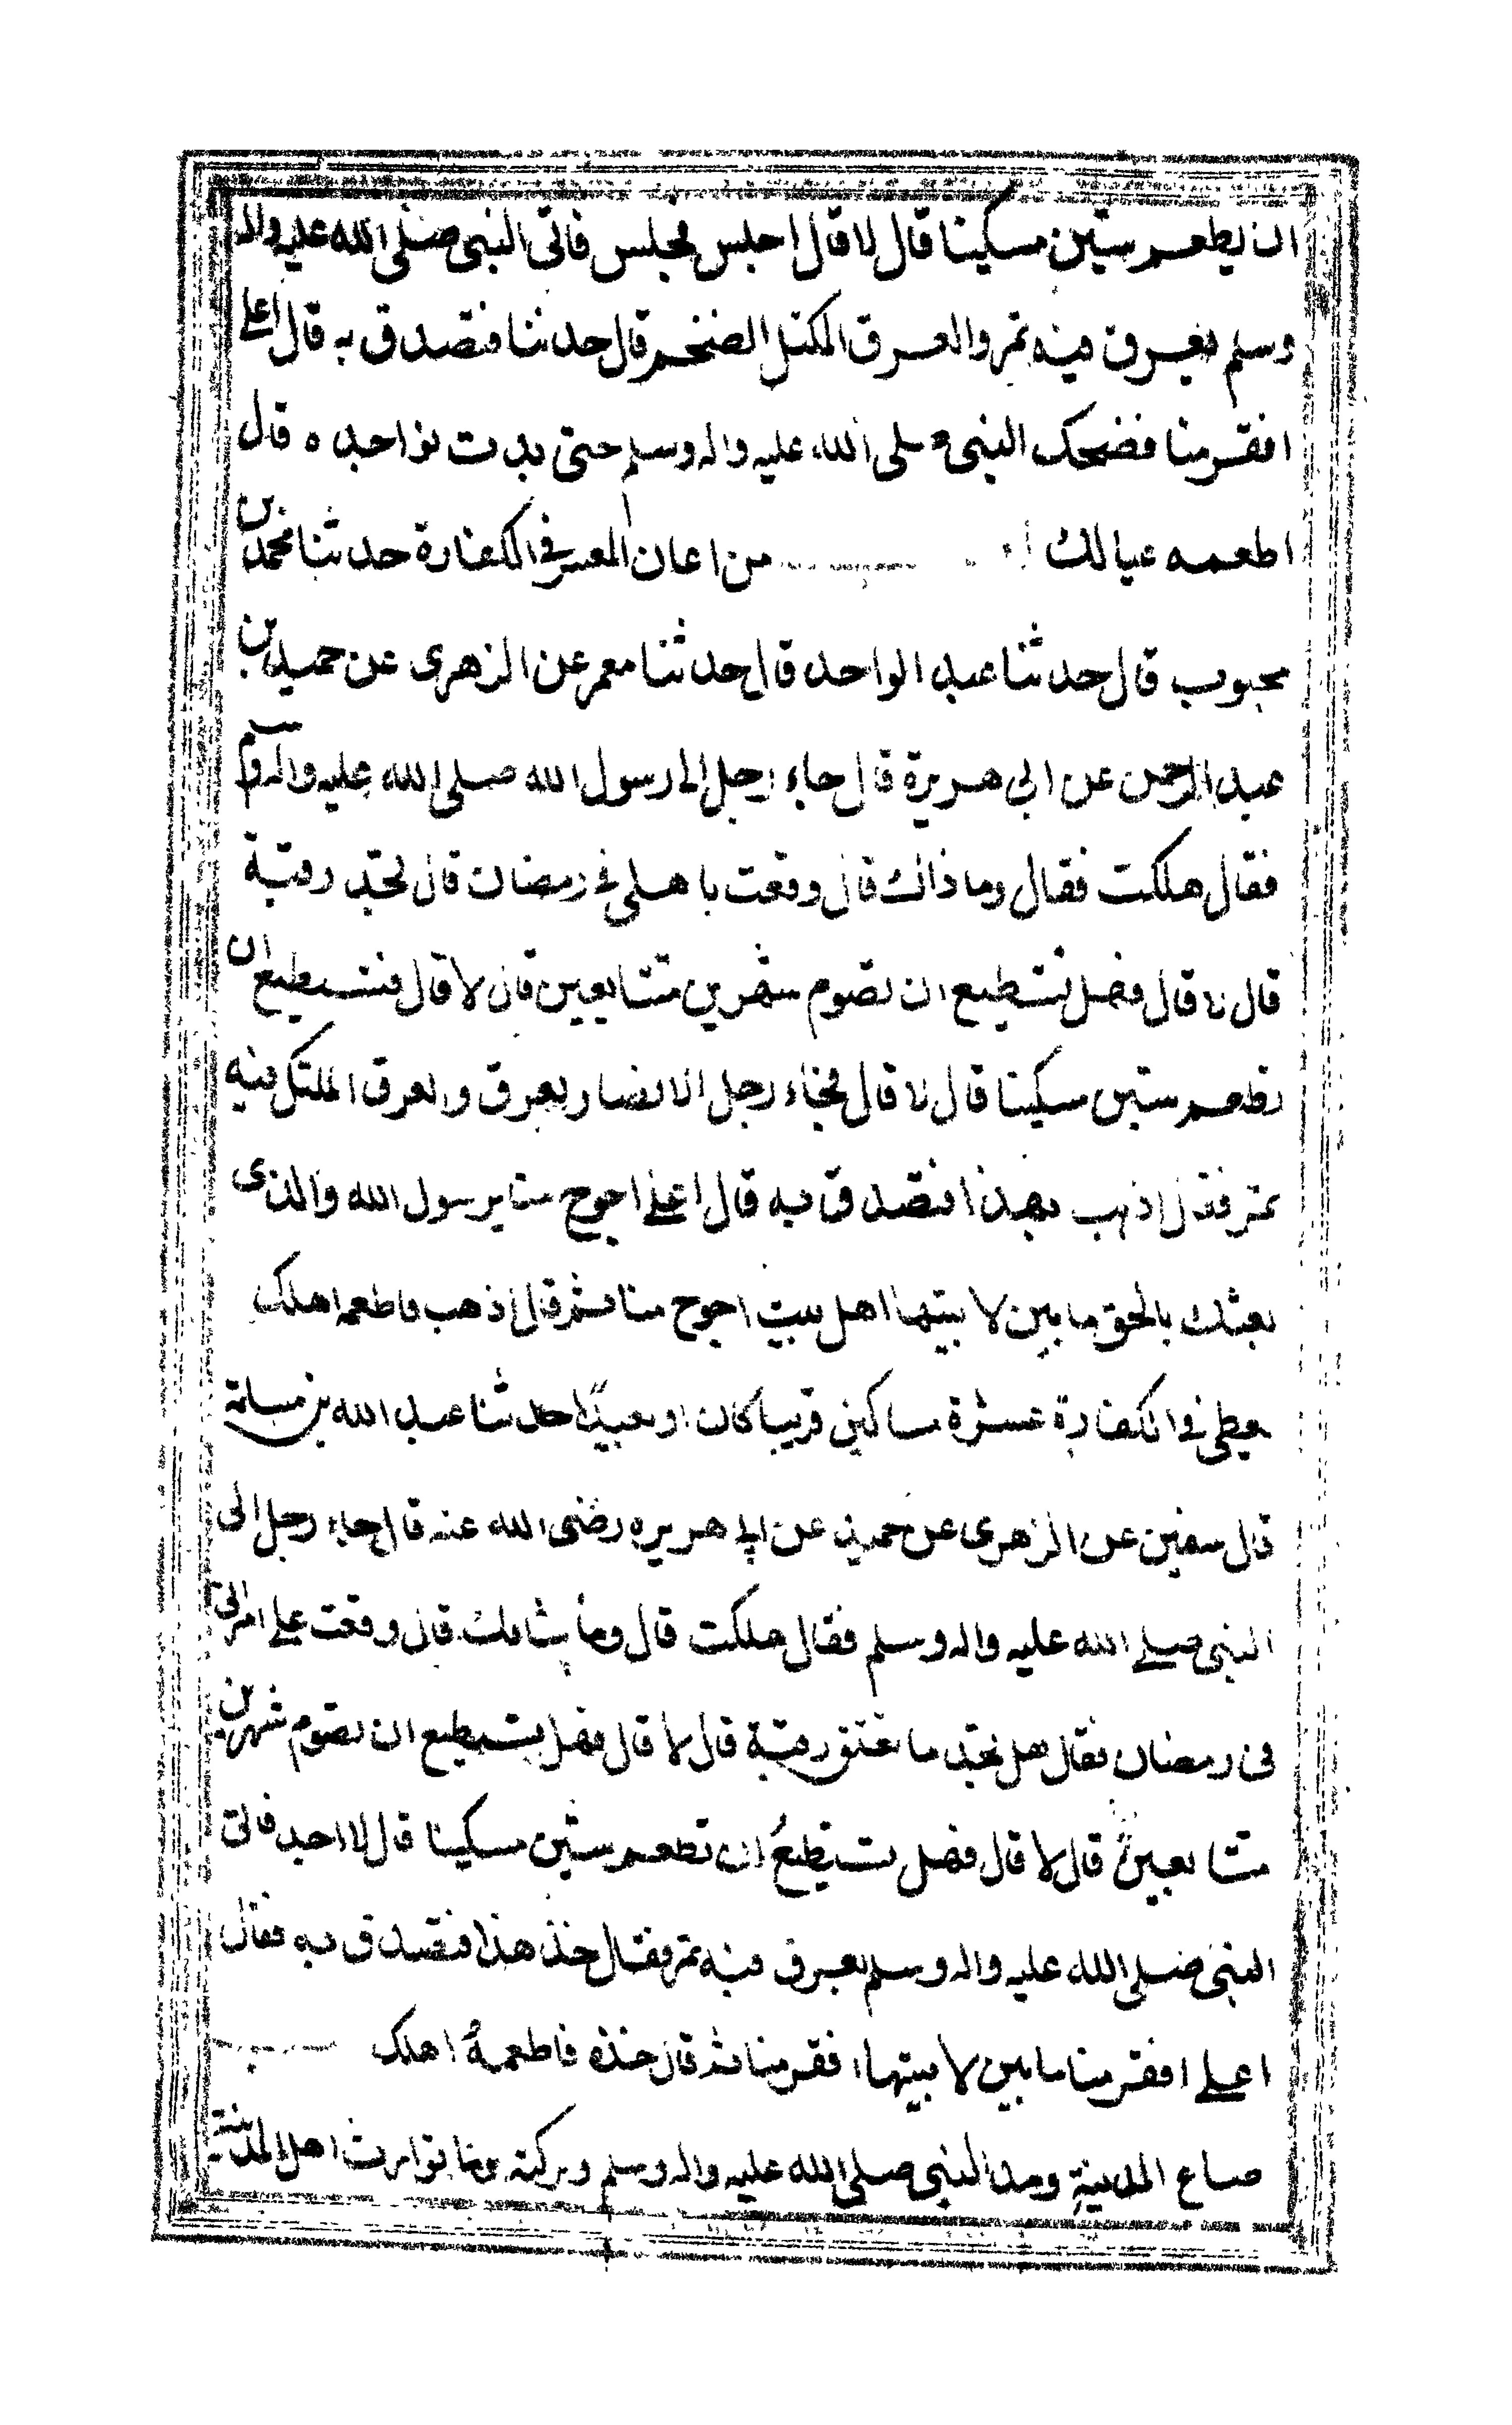 ان يطعم ستين مسكينا قال لا قال اجلس فجلس فاتى النبي صلى الله عليه واله
وسلم بعرق فيه تمر والعرق المكتل الضخم قال خذ هذا فتصدق به قال اعلى
افقر منا فضحك النبي صلى الله عليه واله وسلم حتى بدت نواجذه قال
اطعمه عيالك من اعان المعسر في الكفارة حدثنا محمد بن
محبوب قال حدثنا عبد الواحد قال حدثنا معمر عن الزهرى عن حميد بن
عبد الرحمن عن ابي هريرة قال جاء رجل الى رسول الله صلى الله عليه واله وسلم
فقال هلكت فقال وما ذاك قال وقعت باهلى في رمضان قال تجد رقبة
قال لا قال فهل تستطيع ان تصوم شهرين متتابعين قال لا قال فتستطيع ان
تطعم ستين مسكينا قال لا قال فجاء رجل الانصار بعرق والعرق المكتل فيه
تمر فقال اذهب بهذا فتصدق به قال اعلى احوج منا يرسول الله والذى
بعثك بالحق ما بين لابيتها اهل بيت احوج منا ثم قال اذهب فاطعمه اهلك
يعطى في الكفارة عشرة مساكين قريبا كان او بعيدا حدثنا عبد الله بن مسلمة
قال سفين عن الزهرى عن حميد عن ابي هريره رضى الله عنه قال جاء رجل الى
النبي صلى الله عليه واله وسلم فقال هلكت قال وما شانك قال وقعت على امراتي
فى رمضان فقال هل تجد ما تعتق رقبة قال لا قال فهل تستطيع ان تصوم شهرين
متتابعين قال لا قال فهل تستطيع ان تطعم ستين مسكينا قال لا اجد فاتى
النبي صلى الله عليه واله وسلم بعرق فيه تمر فقال خذ هذا فتصدق به فقال
اعلى افقر منا ما بين لابيتها افقر منا ثم قال خذه فاطعمه اهلك
صاع المدينة ومد النبي صلى الله عليه واله وسلم وبركته وما توارث اهل المدينة